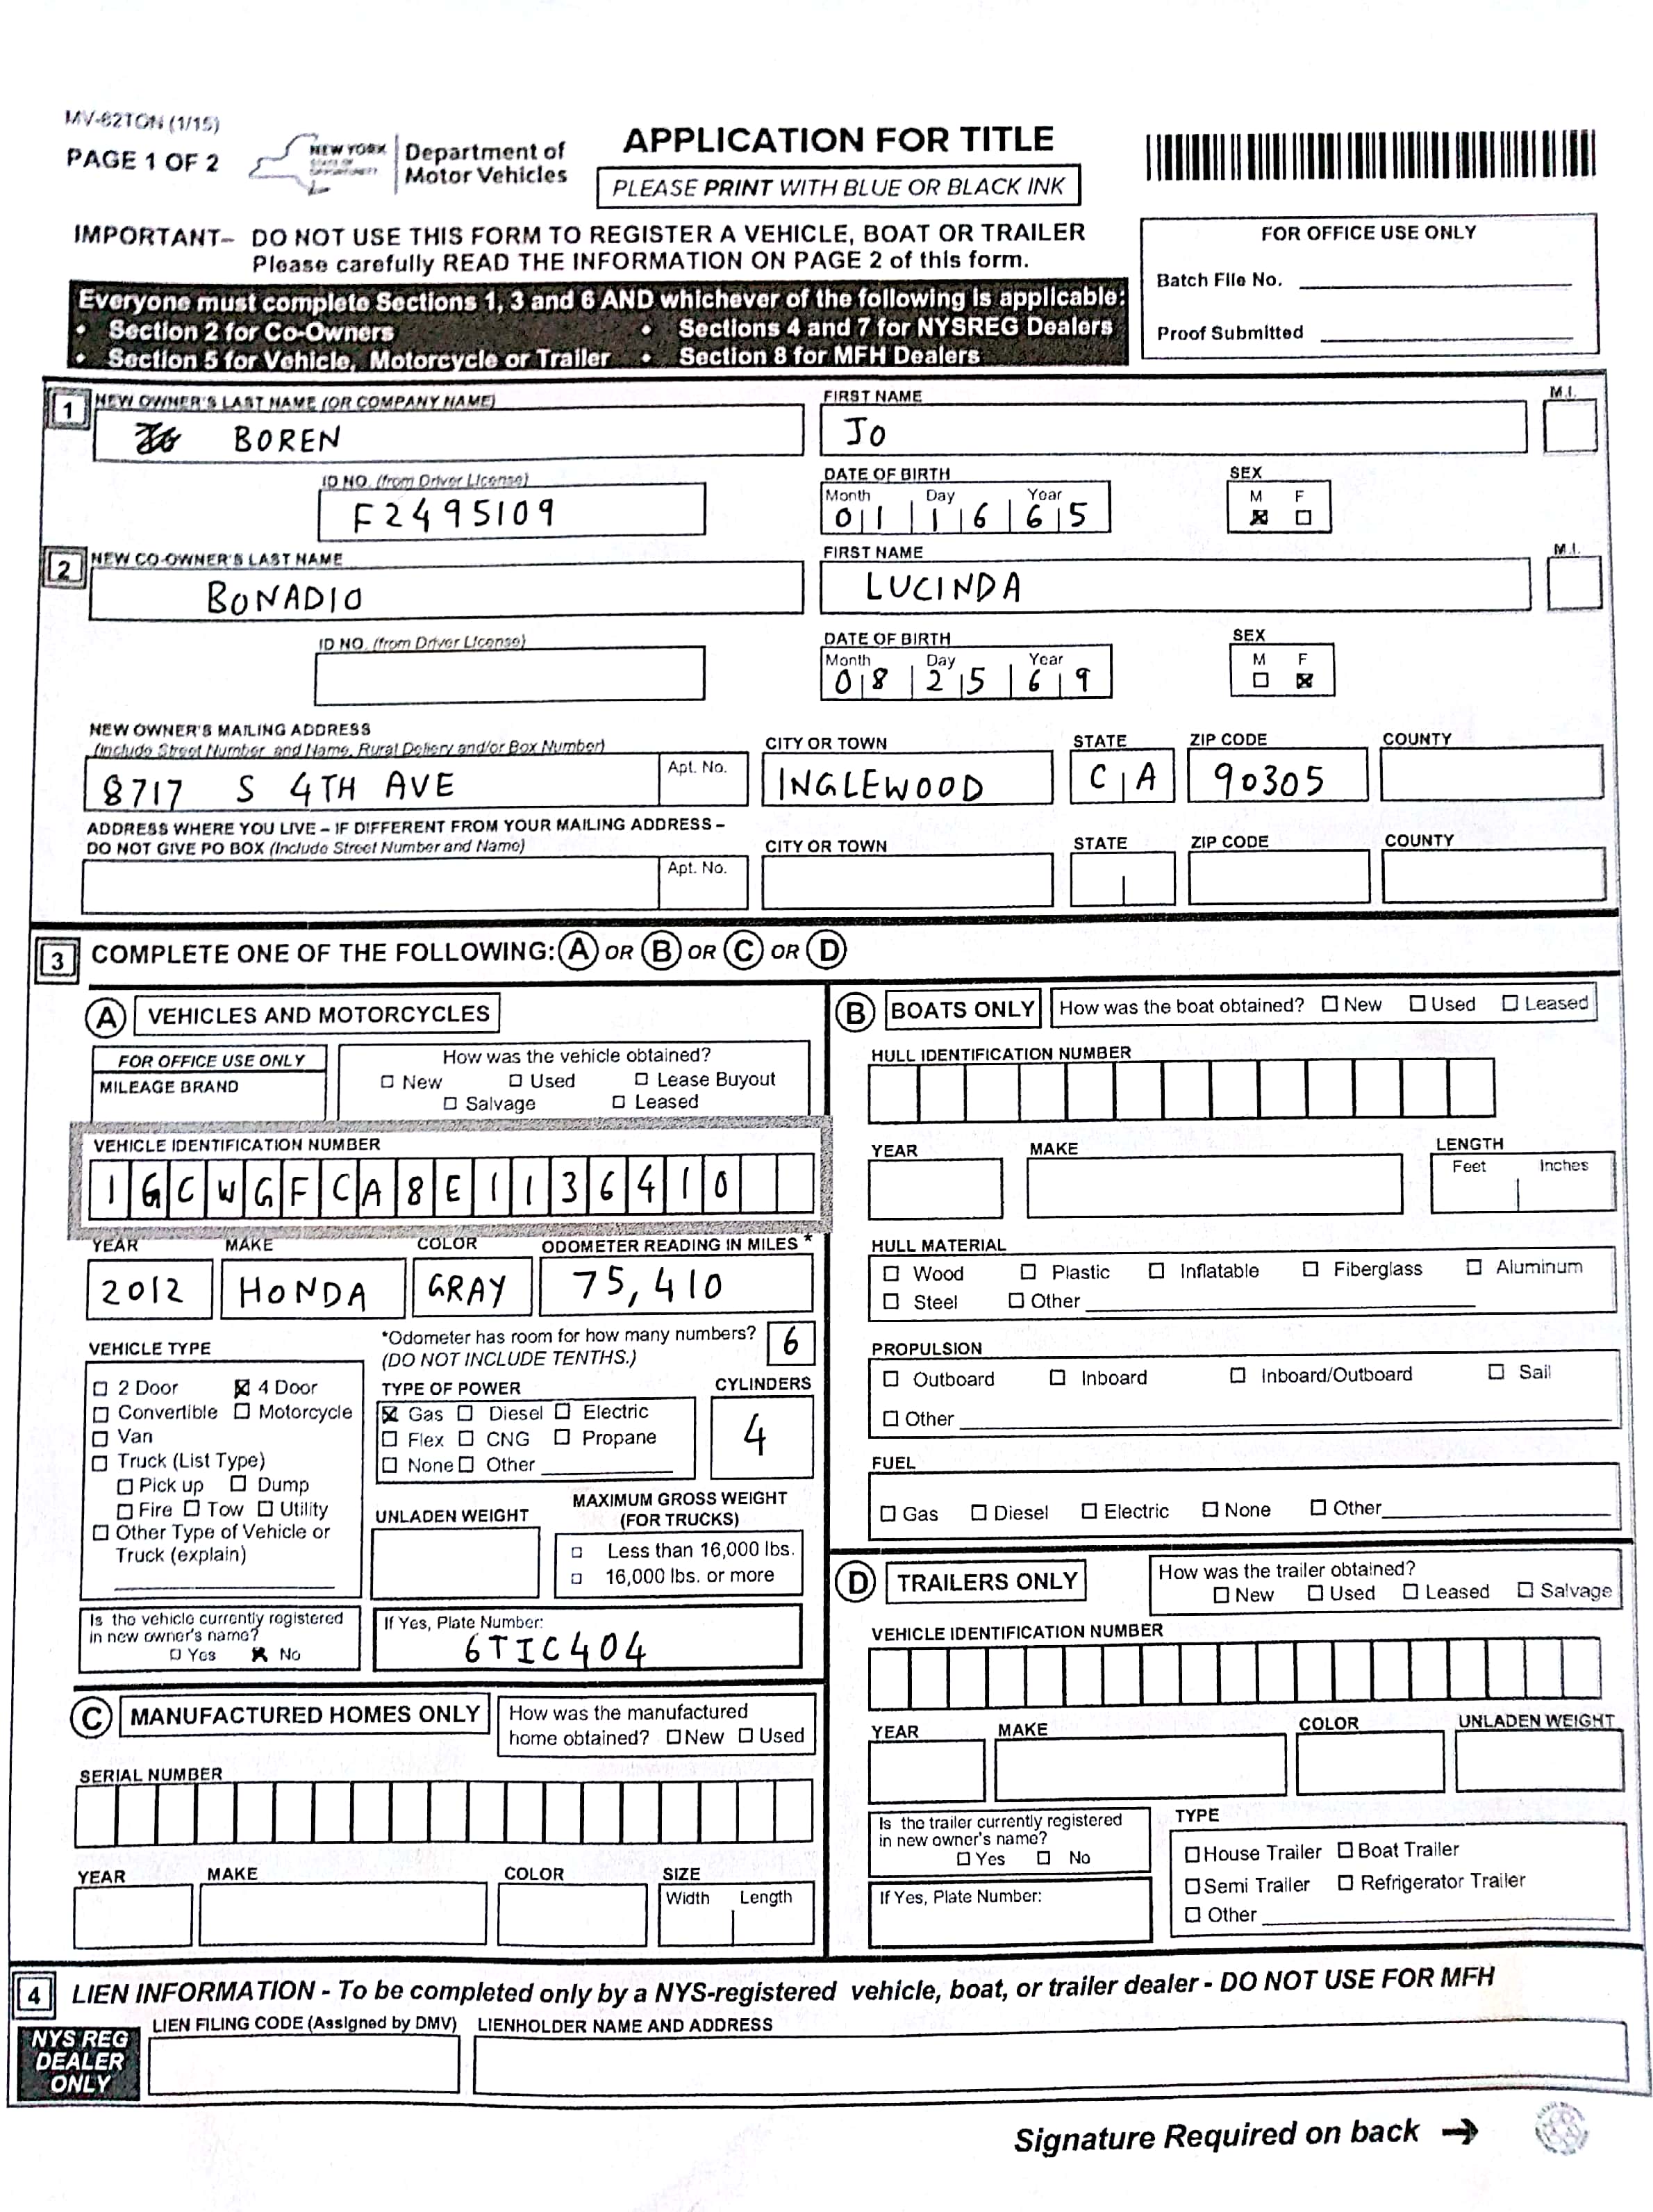 MV-82TON (1/15)
PAGE 1 OF 2
NEW YORK
STATE OF
OPPORTUNITY
Department of
Motor Vehicles
APPLICATION FOR TITLE
PLEASE PRINT WITH BLUE OR BLACK INK
IMPORTANT– DO NOT USE THIS FORM TO REGISTER A VEHICLE, BOAT OR TRAILER
Please carefully READ THE INFORMATION ON PAGE 2 of this form.
FOR OFFICE USE ONLY
Batch File No.
Proof Submitted
Everyone must complete Sections 1, 3 and 6 AND whichever of the following is applicable:
• Section 2 for Co-Owners • Sections 4 and 7 for NYSREG Dealers
• Section 5 for Vehicle, Motorcycle or Trailer • Section 8 for MFH Dealers
1 NEW OWNER'S LAST NAME (OR COMPANY NAME) FIRST NAME M.I.
BOREN JO
ID NO. (from Driver License) DATE OF BIRTH SEX
Month Day Year M F
F2495109 01 16 65
2 NEW CO-OWNER'S LAST NAME FIRST NAME M.I.
BONADIO LUCINDA
ID NO. (from Driver License) DATE OF BIRTH SEX
Month Day Year M F
08 25 69
NEW OWNER'S MAILING ADDRESS
(Include Street Number and Name, Rural Delivery and/or Box Number) CITY OR TOWN STATE ZIP CODE COUNTY
Apt. No.
8717 S 4TH AVE INGLEWOOD CA 90305
ADDRESS WHERE YOU LIVE – IF DIFFERENT FROM YOUR MAILING ADDRESS –
DO NOT GIVE PO BOX (Include Street Number and Name) CITY OR TOWN STATE ZIP CODE COUNTY
Apt. No.
3 COMPLETE ONE OF THE FOLLOWING: A OR B OR C OR D
A VEHICLES AND MOTORCYCLES
FOR OFFICE USE ONLY
MILEAGE BRAND
How was the vehicle obtained?
New Used Lease Buyout
Salvage Leased
VEHICLE IDENTIFICATION NUMBER
1GCWGFCA8E1136410
YEAR MAKE COLOR ODOMETER READING IN MILES *
2012 HONDA GRAY 75,410
*Odometer has room for how many numbers? 6
(DO NOT INCLUDE TENTHS.)
VEHICLE TYPE
2 Door 4 Door
Convertible Motorcycle
Van
Truck (List Type)
Pick up Dump
Fire Tow Utility
Other Type of Vehicle or
Truck (explain)
TYPE OF POWER CYLINDERS
Gas Diesel Electric
Flex CNG Propane
None Other
4
UNLADEN WEIGHT
MAXIMUM GROSS WEIGHT
(FOR TRUCKS)
Less than 16,000 lbs.
16,000 lbs. or more
Is the vehicle currently registered
in new owner's name?
Yes No
If Yes, Plate Number:
6TIC404
B BOATS ONLY How was the boat obtained? New Used Leased
HULL IDENTIFICATION NUMBER
YEAR MAKE LENGTH
Feet Inches
HULL MATERIAL
Wood Plastic Inflatable Fiberglass Aluminum
Steel Other
PROPULSION
Outboard Inboard Inboard/Outboard Sail
Other
FUEL
Gas Diesel Electric None Other
C MANUFACTURED HOMES ONLY
How was the manufactured
home obtained? New Used
SERIAL NUMBER
YEAR MAKE COLOR SIZE
Width Length
D TRAILERS ONLY
How was the trailer obtained?
New Used Leased Salvage
VEHICLE IDENTIFICATION NUMBER
YEAR MAKE COLOR UNLADEN WEIGHT
Is the trailer currently registered
in new owner's name?
Yes No
If Yes, Plate Number:
TYPE
House Trailer Boat Trailer
Semi Trailer Refrigerator Trailer
Other
4 LIEN INFORMATION - To be completed only by a NYS-registered vehicle, boat, or trailer dealer - DO NOT USE FOR MFH
NYS REG
DEALER
ONLY
LIEN FILING CODE (Assigned by DMV) LIENHOLDER NAME AND ADDRESS
Signature Required on back →